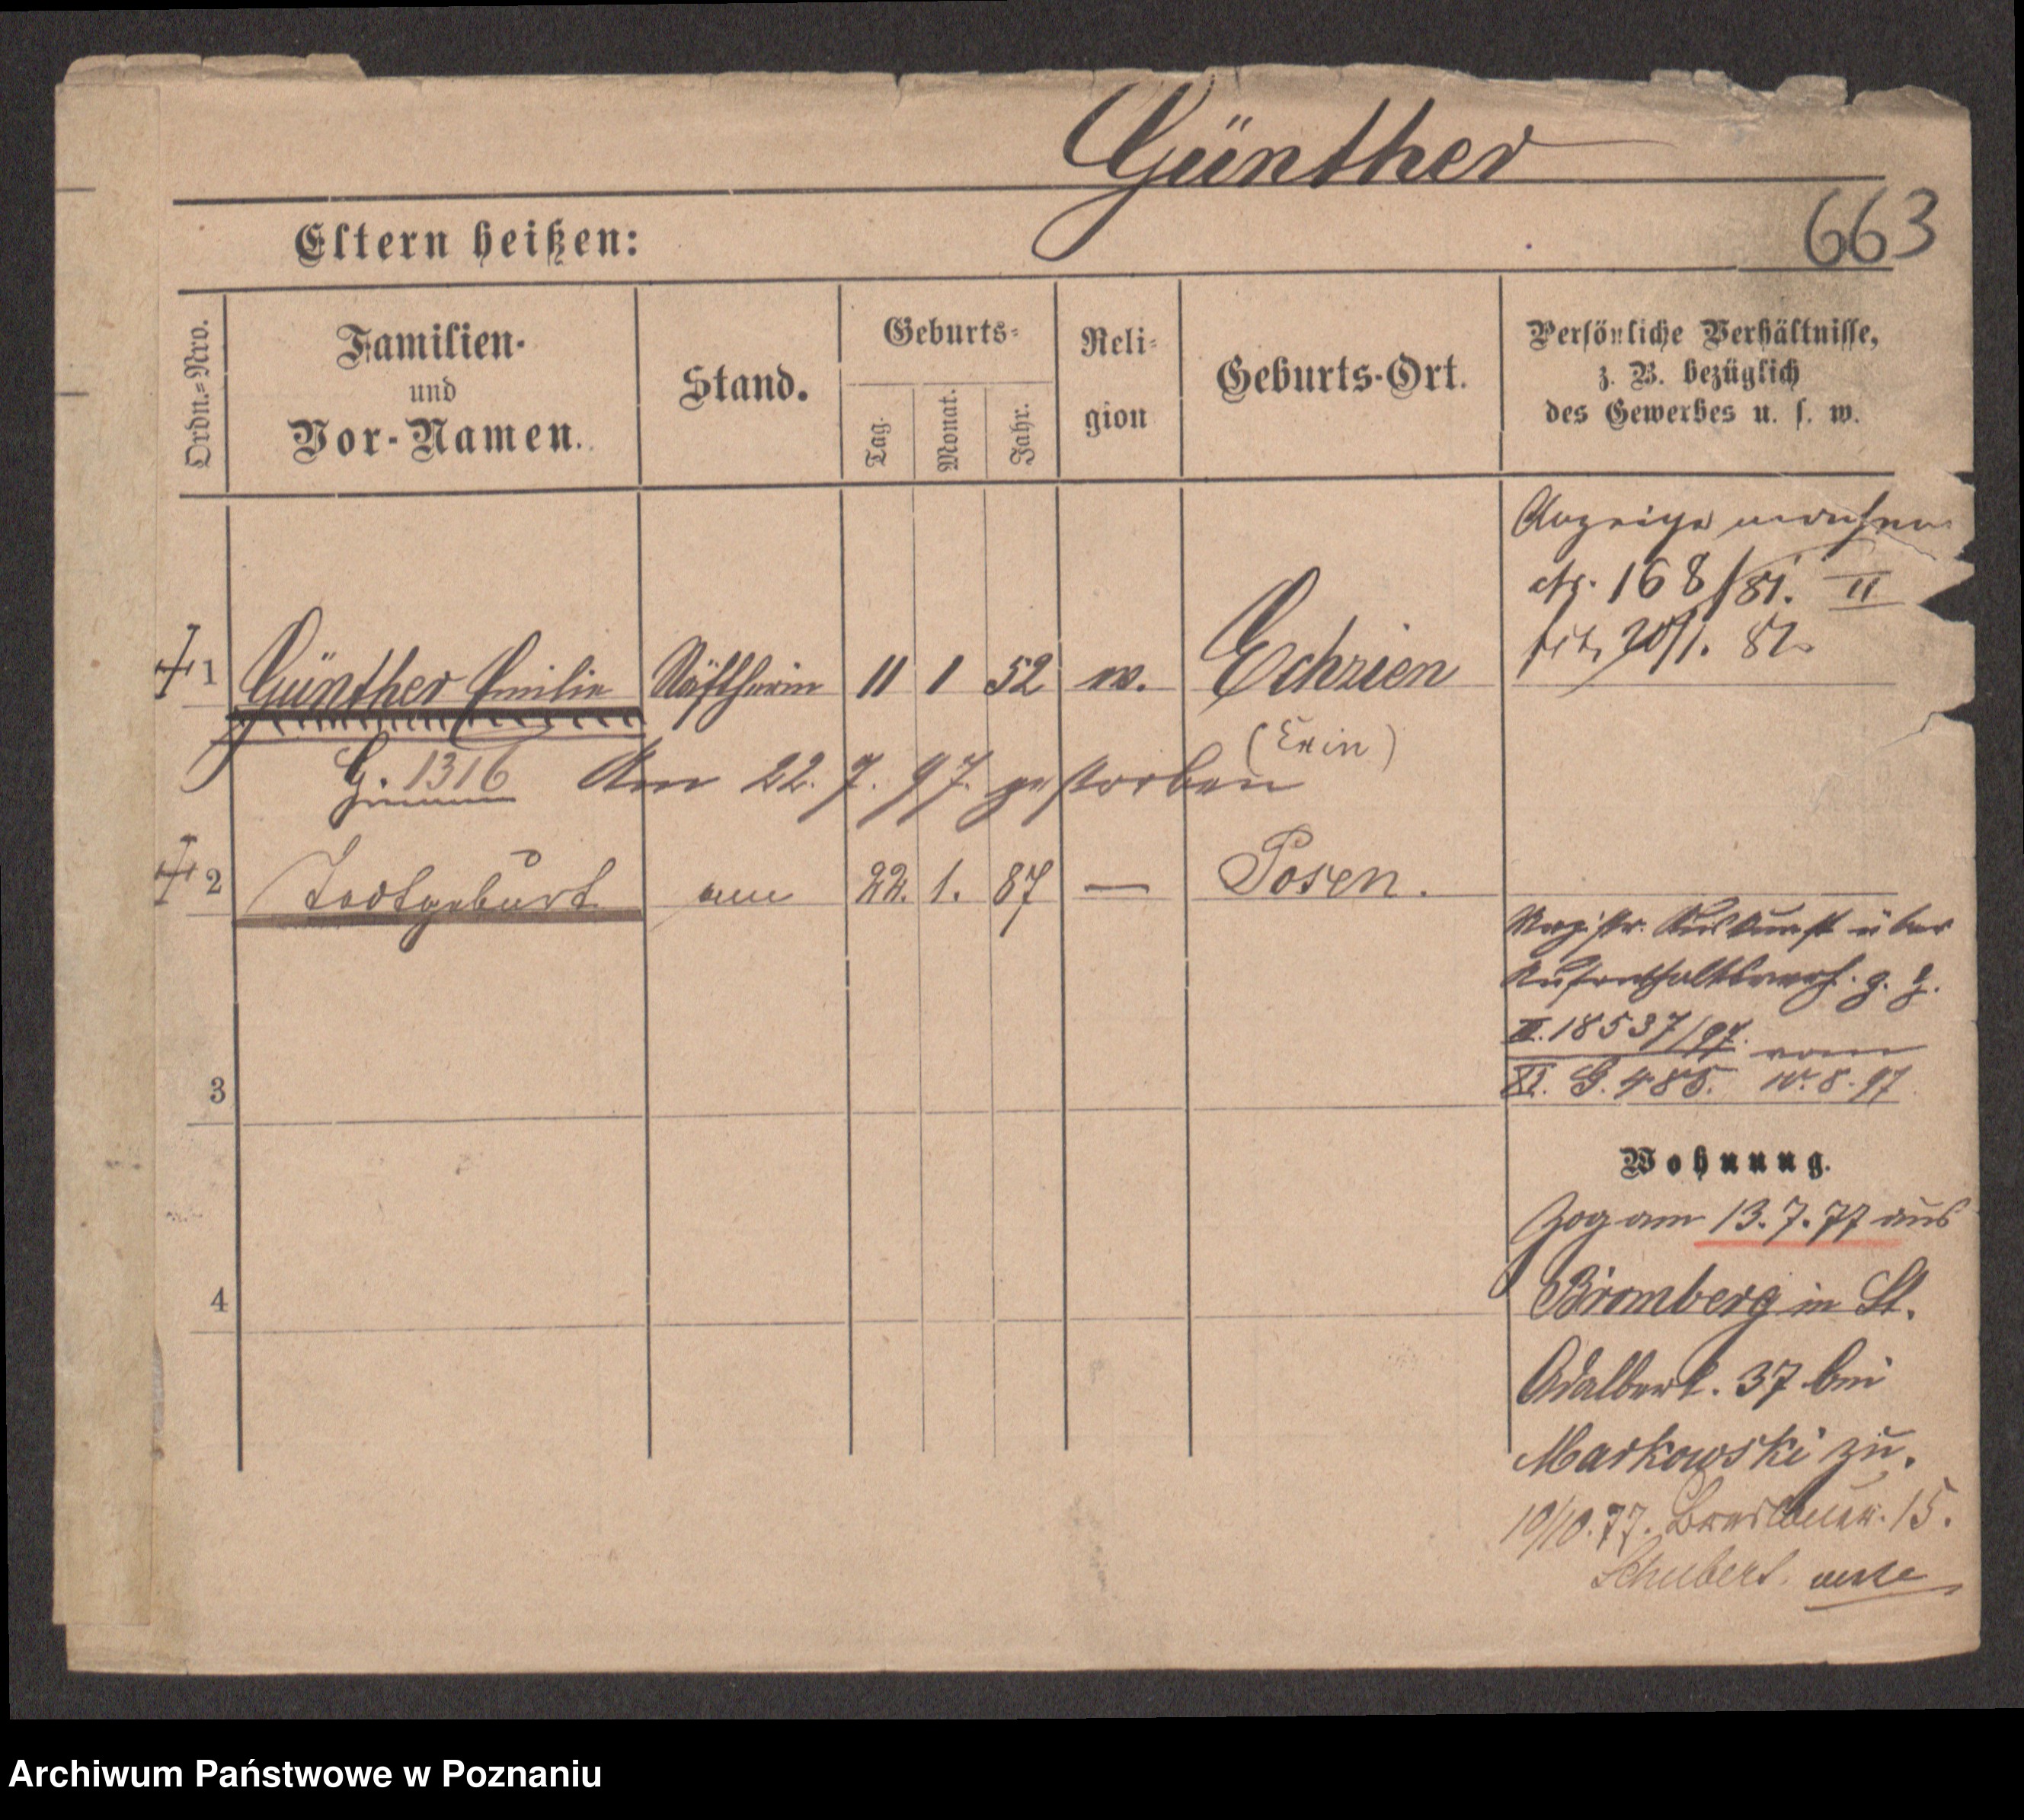 Günther
663
Eltern heißen:
Ordn.-Nro.
Familien-
und
Vor-Namen.
Stand.
Geburts-
Tag.
Monat.
Jahr.
Reli-
gion
Geburts-Ort.
Persönliche Verhältnisse,
z. B. bezüglich
des Gewerbes u. s. w.
Anzeige machen
168/81. II
20/1. 82
1 Günther Emilie Nätherin 11 1 52 Echzien
(Exin)
G. 1316 Am 22. 7. 97. gestorben
2 Todtgeburt am 22. 1. 87 — Posen.
Magistr. Auskunft über
Aufenthaltsverh. g. z.
II. 18537/97. vom
XI. G. 485. 10. 8. 97
3
Wohnung.
Zog am 13. 7. 77 aus
4
Bromberg in St.
Adalbert. 37 bei
Markowski zu.
10/10. 77. Breslauer. 15.
Schubert.
Archiwum Państwowe w Poznaniu